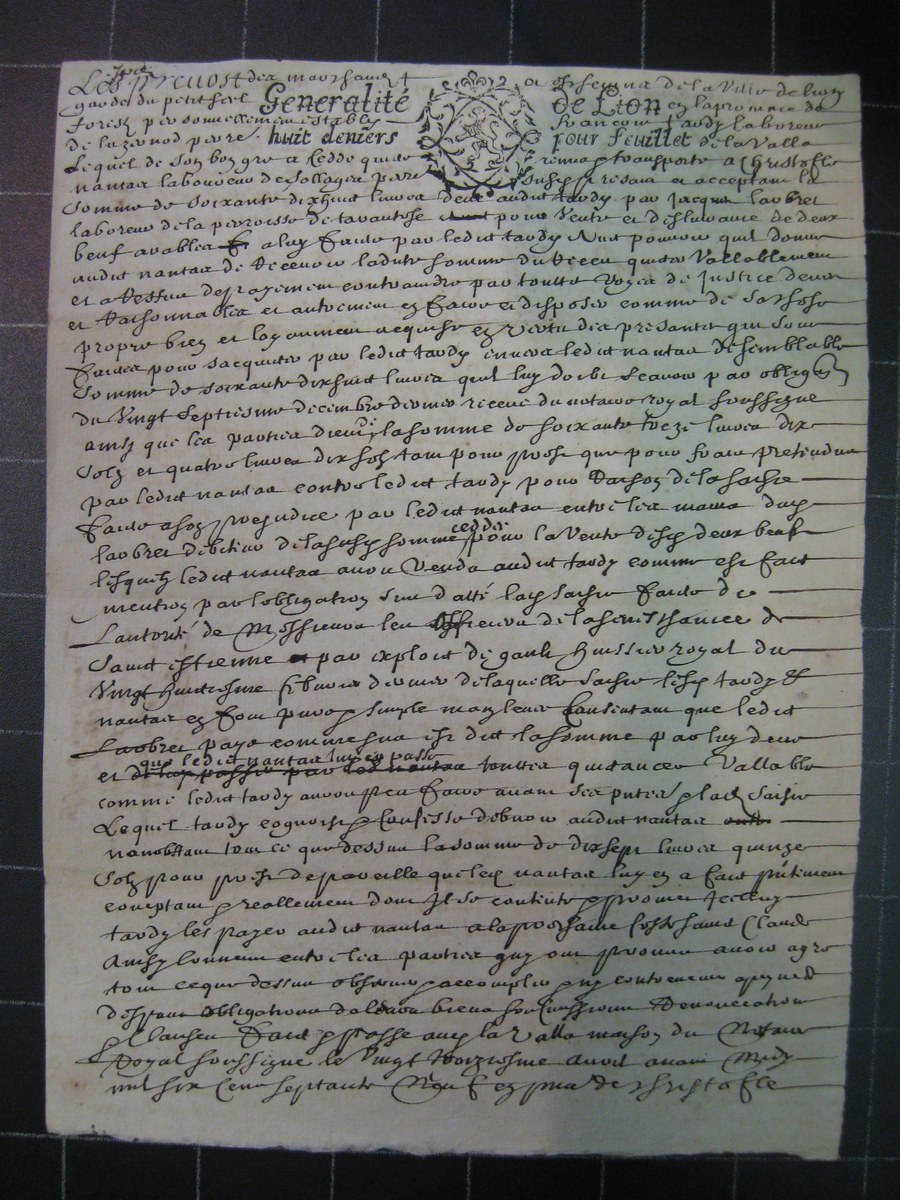 Les prevost des marchans et eschevins de la Ville de lion
gardes du petit seel Generalité de Lion en la province de
forestz personnellement estably françois tardy laboureur
de huit deniers pour feuillet de la Valla
Lequel de son bon gre a cedde quitte remis et transporte a Christofle
nantas laboureur de Sollages present et acceptant la
somme de soixante dixhuict livres deue audit tardy par Jacques laubres
laboreur de la parroisse de pour Vente et deslivrance de deux
beuf arables a luy faite par ledict tardy pouvoir quil donne
audit nantas de recevoir ladite somme du receu quitter Vallablement
et a deffaut de payement contraindre par toutte voyes de Justice deues
et raisonnables et autrement en faire et disposer comme de sa chose
propre bien et loyaument acquise en vertu des presantes qui sont
faites pour sacquiter par ledict tardy envers ledict nantas de semblable
somme de soixante dixhuict livres quil luy doibt scavoir par oblig
du Vingt septiesme decembre dernier receue du notaire royal soussigne
ainsy que les parties la somme de soixante treze livres dix
solz et quatre livres dix solz tam pour que pour frais pretendeu
par ledict nantas contre ledict tardy pour raison de la saisie
faite a son prejudice par ledict nantas entre les mains dud
laubres debiteur de la susd somme ceddee pour la Vente desd deux beuf
lesquelz ledict nantas avoit Vendu audict tardy comme est faict
mention par lobligation sus datté lad saisie faite de
Lautorité de Messieurs les officiers de la senechaucee de
Saint estienne par exploit de huissier royal du
Vingt huictiesme febvrier dernier de laquelle saisie lesd tardy et
nantas en font pure et simple main levee Consentant que ledict
Laubres paye comme sus est dit la somme par luy deue
et que ledict nantas luy en passe touttes quitances Vallable
comme ledict tardy auroit peu faire avant ses presantes et lad saisie
Lequel tardy cognoist et Confesse debvoir audict nantas
nonobstant tout ce que dessus la somme de dixsept livres quinze
solz pour prest de pareille que led nantas luy en a faict
comptam et reallement dont Il se contente et promet Icelluy
tardy les payer audict nantas a la prochaine feste saint Claude
Ainsy convenu entre les parties quy ont promis avoir agre
tout ce que dessus observer et accomplir et ny contrevenir a peyne
despans obligations de leurs biens soubmissions Renonciation
et Clauses faict et passe aud la Valla maison du Notaire
Royal soussigne le Vingt troiziesme avril avant Midy
mil six Cens septante Neuf en presance de christofle